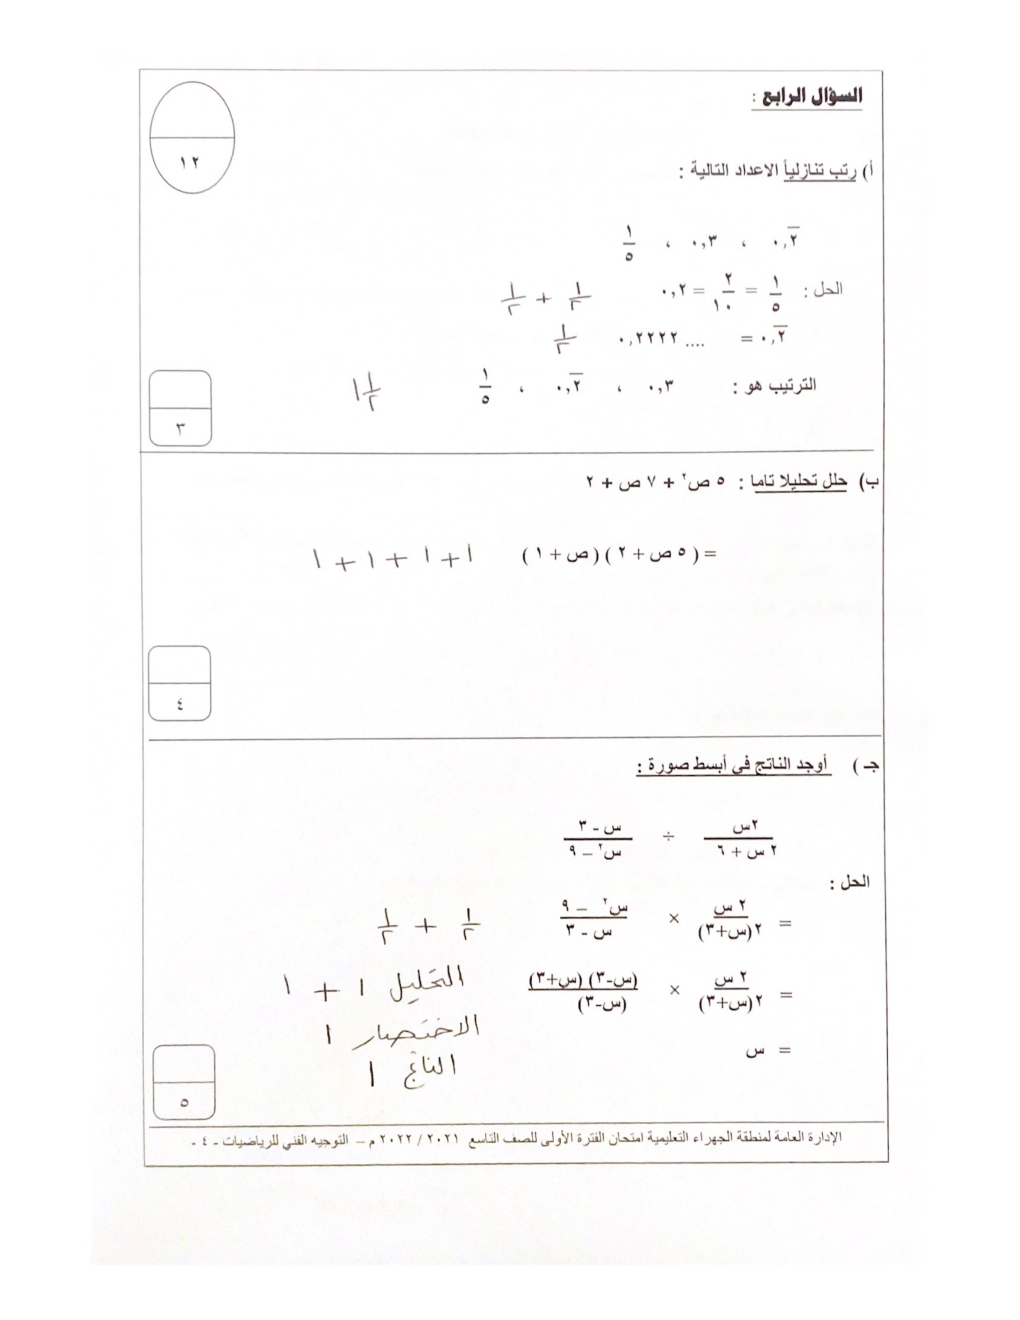 السؤال الرابع :
١٢
أ) رتب تنازلياً الاعداد التالية :
٠,٢̅ ، ٠,٣ ، ١/٥
الحل : ١/٥ = ٢/١٠ = ٠,٢ ١/٢ + ١/٢
٠,٢̅ = .... ٠,٢٢٢٢ ١/٢
الترتيب هو : ٠,٣ ، ٠,٢̅ ، ١/٥ ١ ١/٢
٣
ب) حلل تحليلا تاما : ٥ ص² + ٧ ص + ٢
= ( ٥ ص + ٢ ) ( ص + ١ ) ١ + ١ + ١ + ١
٤
جـ ) أوجد الناتج في أبسط صورة :
٢س / ٢ س + ٦ ÷ س - ٣ / س² – ٩
الحل :
= ٢ س / ٢(س+٣) × س² – ٩ / س - ٣ ١/٢ + ١/٢
= ٢ س / ٢(س+٣) × (س-٣) (س+٣) / (س-٣) التحليل ١ + ١
الاختصار ١
= س
الناتج ١
٥
الإدارة العامة لمنطقة الجهراء التعليمية امتحان الفترة الأولى للصف التاسع ٢٠٢١ / ٢٠٢٢ م – التوجيه الفني للرياضيات - ٤ -